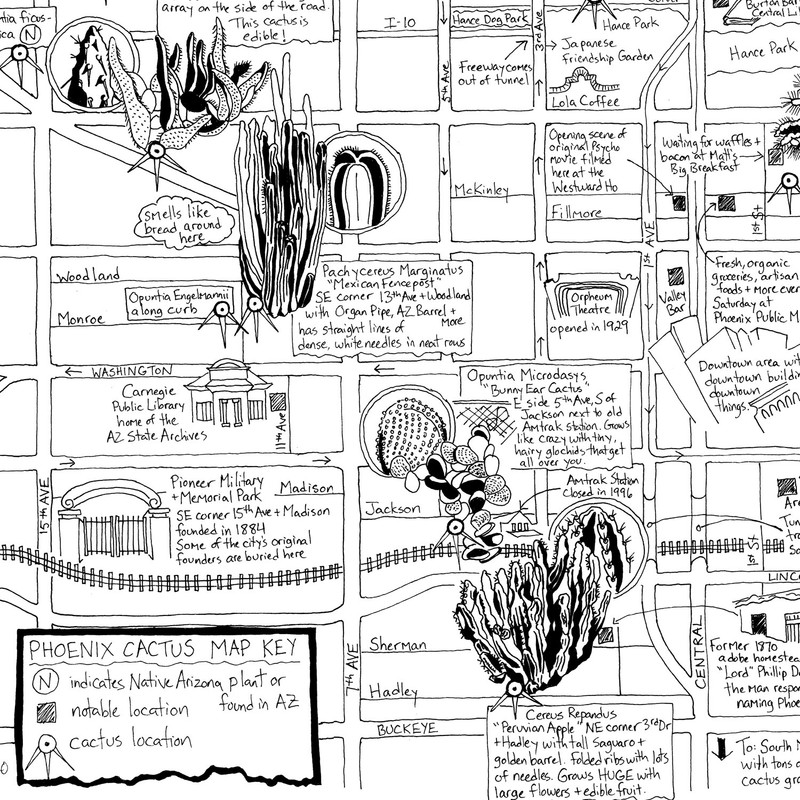 array on the side of the road.
This cactus is
edible!
ntia ficus-
ica N
I-10
5th Ave
Hance Dog Park
Freeway comes
out of tunnel
3rd Ave
Hance Park
Japanese
Friendship Garden
Lola Coffee
Burton Bar
Central Li
Hance Park
Opening scene of
original Psycho
movie filmed
here at the
Westward Ho
Waiting for waffles +
bacon at Matt's
Big Breakfast
McKinley
Fillmore
1st AVE
1st St
smells like
bread around
here
Woodland
Opuntia Engelmannii
along curb
Monroe
Pachycereus Marginatus
"Mexican Fencepost"
SE corner 13th Ave + Woodland
with Organ Pipe, AZ Barrel +
More
has straight lines of
dense, white needles in neat rows
Orpheum
Theatre
opened in 1929
Valley
Bar
Fresh, organic
groceries, artisan
foods + more ever
Saturday at
Phoenix Public M
Downtown area wit
downtown buildin
downtown
things.
WASHINGTON
Carnegie
Public Library
home of the
AZ State Archives
11th Ave
Opuntia Microdasys
"Bunny Ear Cactus"
E side 5th Ave, S of
Jackson next to old
Amtrak station. Grows
like crazy with tiny,
hairy glochids that get
all over you.
Amtrak Station
closed in 1996
15th AVE
Pioneer Military
+ Memorial Park
SE corner 15th Ave + Madison
founded in 1884
Some of the city's original
founders are buried here
Madison
Jackson
Ar
Tun
tra
So
1st St
LINCO
PHOENIX CACTUS MAP KEY
N indicates Native Arizona plant or
found in AZ
notable location
cactus location
7th AVE
Sherman
Hadley
BUCKEYE
CENTRAL
Former 1870
adobe homestea
"Lord" Phillip D
the man respo
naming Phoe
Cereus Repandus
"Peruvian Apple" NE corner 3rd Dr
+ Hadley with tall saguaro +
golden barrel. Folded ribs with lots
of needles. Grows HUGE with
large flowers + edible fruit.
To: South M
with tons o
cactus gr